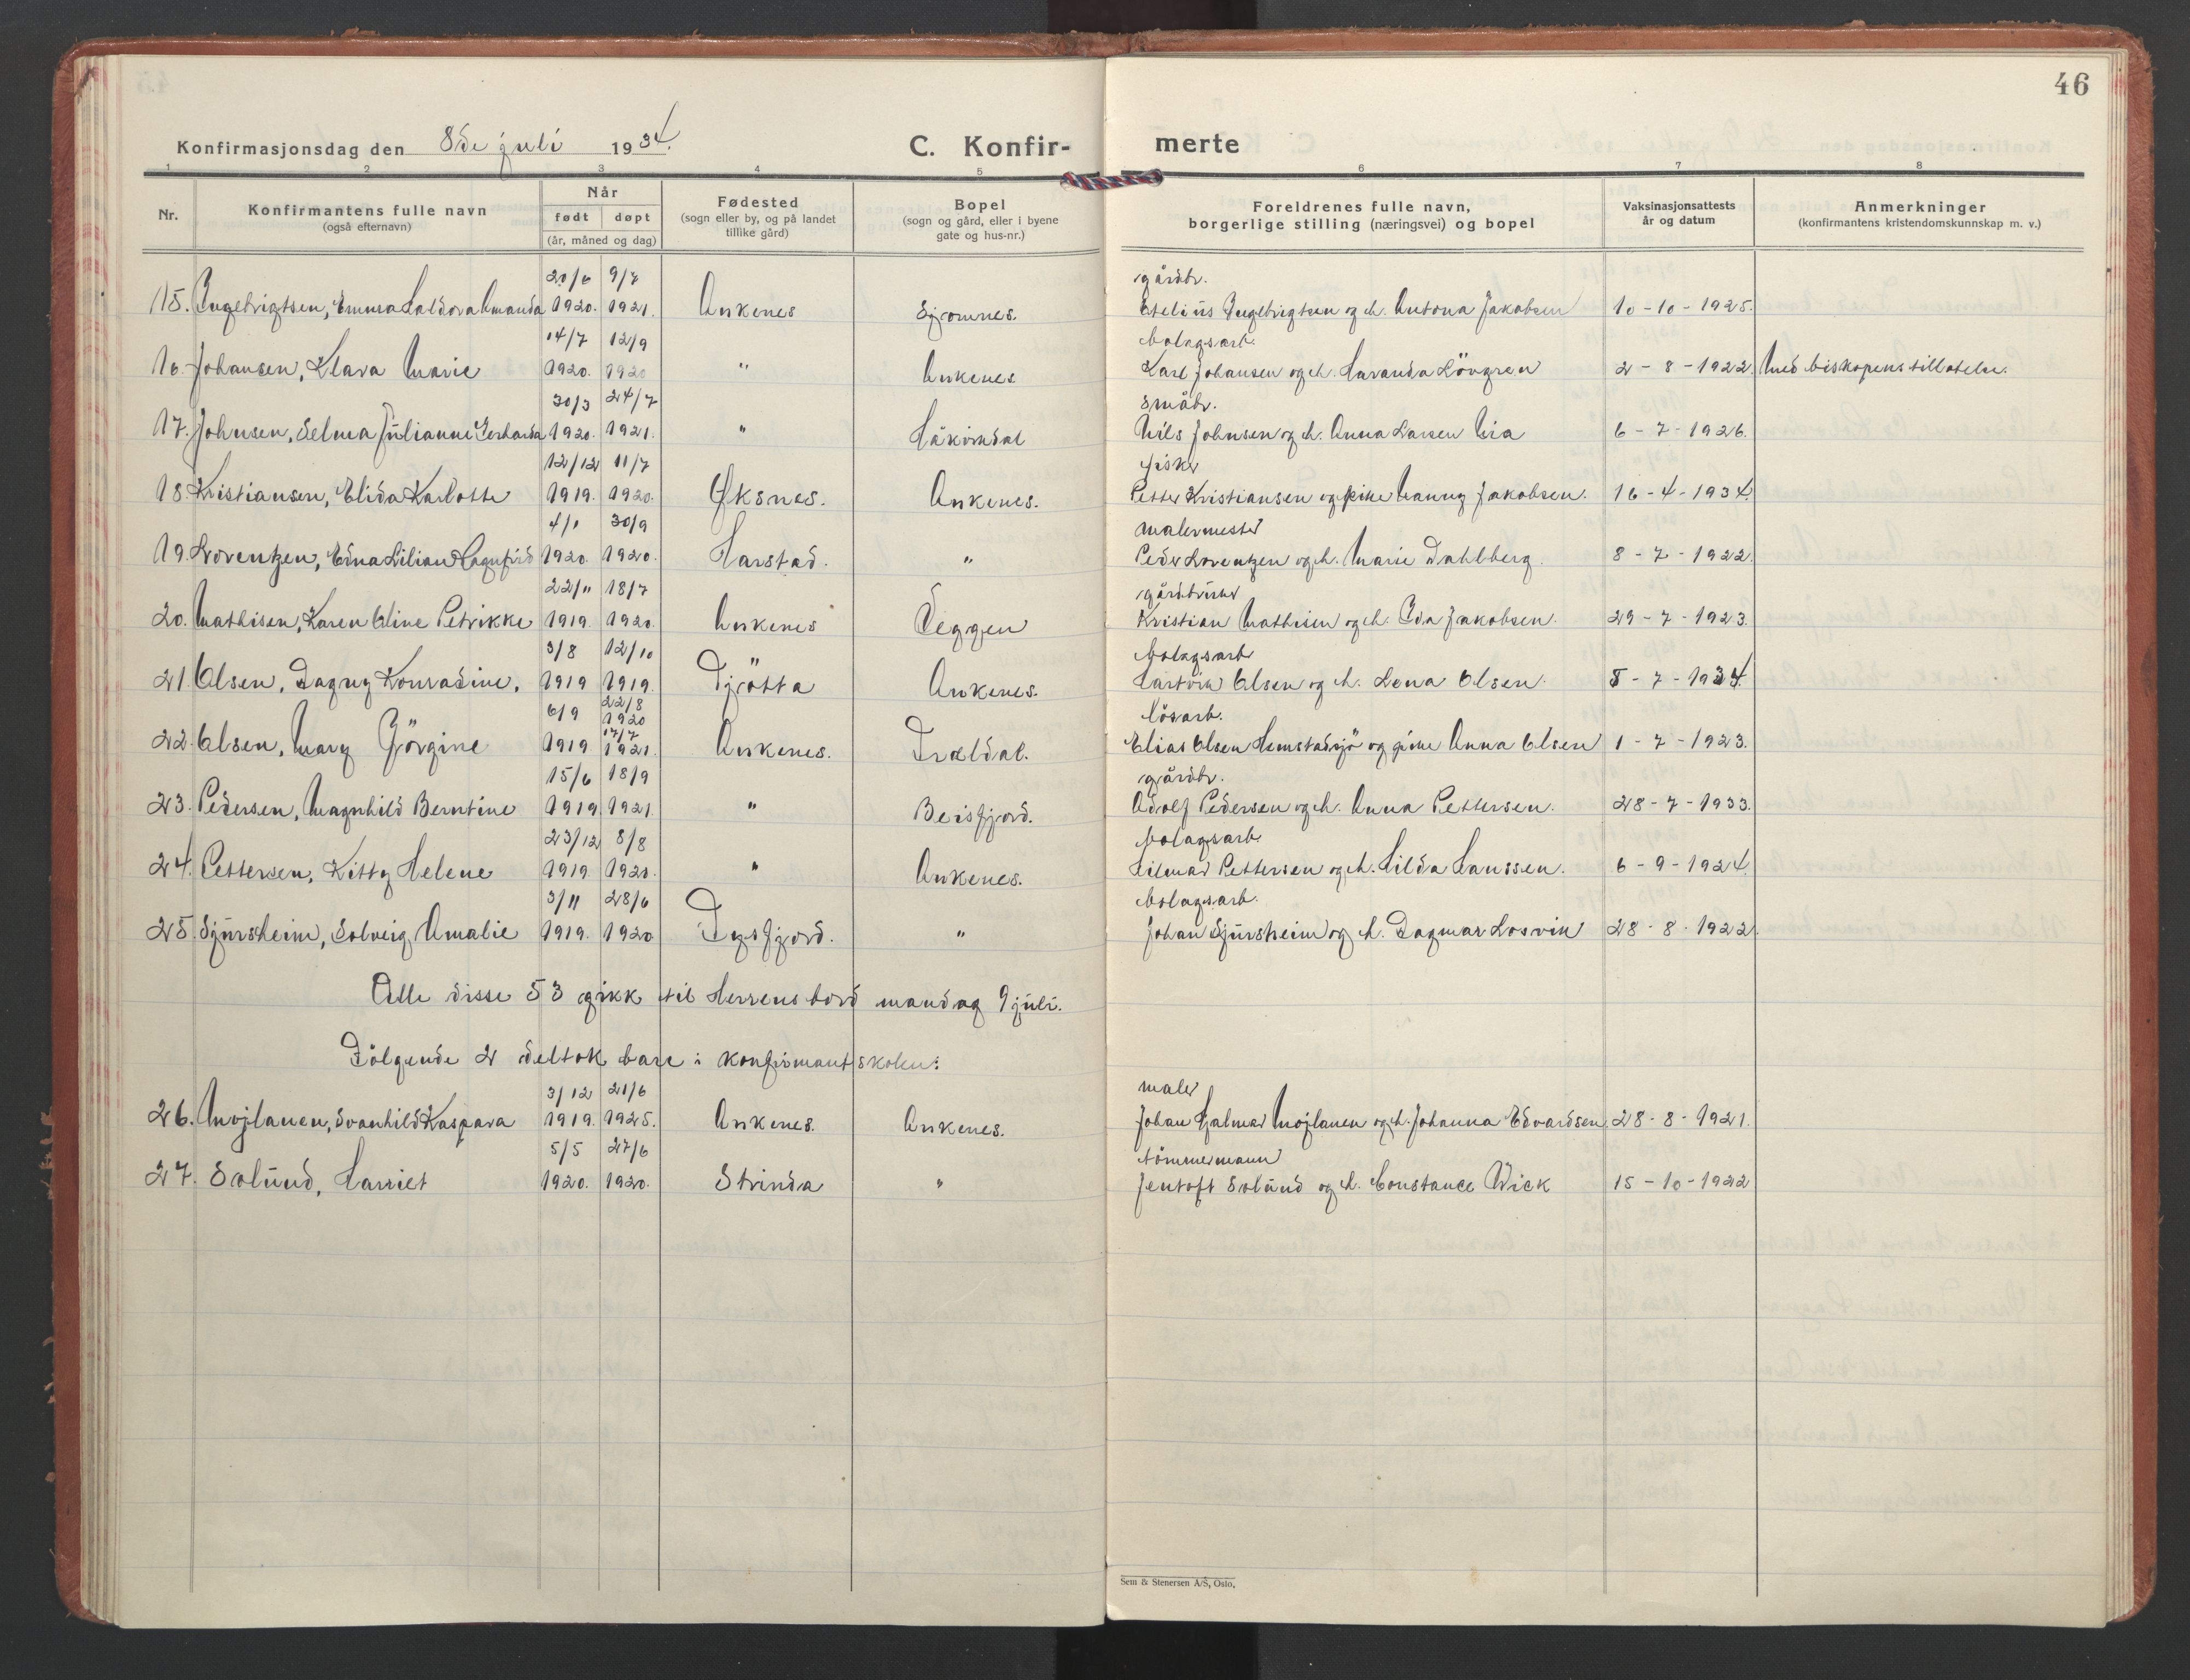 46
Konfirmasjonsdag den 8de juli 1934.
C. Konfir- merte
1 2 3 4 5 6 7 8
Nr.
Konfirmantens fulle navn
(også efternavn)
Når
født døpt
(år, måned og dag)
Fødested
(sogn eller by, og på landet
tillike gård)
Bopel
(sogn og gård, eller i byene
gate og hus-nr.)
Foreldrenes fulle navn,
borgerlige stilling (næringsvei) og bopel
Vaksinasjonsattests
år og datum
Anmerkninger
(konfirmantens kristendomskunnskap m. v.)
20/6 9/7 gårdbr.
15. Ingebrigtsen, Emma Haldora Amanda 1920. 1921. Ankenes Sjomnes. Edelius Ingebrigtsen og h. Antona Jakobsen 10-10-1925.
14/7 12/9 bolagsarb.
16. Johansen, Klara Marie 1920. 1920 " Ankenes Karl Johansen og h. Lövgren 2-8-1922. Med biskopens tillatelse.
30/3 24/7 småbr.
17. Johnsen, Selma Julianne Gerharda 1920. 1921. " Håkvikdal Nils Johnsen og h. Anna Larsen Lia 6-7-1926.
12/12 11/7 fisker
18. Kristiansen, Elida Karlotte 1919. 1920. Øksnes. Ankenes. Petter Kristiansen og pike Nanny Jakobsen. 16-4-1934.
4/1 30/9 malermester
19. Lorentzen, Edna Lilian Ragnfrid 1920. 1920. Harstad. " Peder Lorentzen og h. Marie Dahlberg. 8-7-1922.
22/11 18/7 gårdbruker
20. Mathisen, Karen Oline Petrikke 1919. 1920. Ankenes Seggen Kristian Mathisen og h. Ida Jakobsen. 29-7-1923.
3/8 12/10 bolagsarb
21. Olsen, Dagny Konradine, 1919 1919. Tjötta Ankenes. Hartvik Olsen og h. Lena Olsen. 5-7-1934.
6/9 22/8 1920 lösarb.
22. Olsen, Mary Görgine 1919. 17/7 1921. Ankenes. Fraldal. Elias Olsen Hemstadsjö og pike Anna Olsen 1-7-1923.
15/6 18/9 gårdbr.
23. Pedersen, Magnhild Berntine 1919 1921. " Beisfjord. Adolf Pedersen og h. Anna Pettersen. 28-7-1933.
23/12 8/8 bolagsarb.
24. Pettersen, Kitty Helene 1919. 1920. " Ankenes. Hilmar Pettersen og h. Hilda Hanssen. 6-9-1924.
3/11 28/6 bolagsarb.
25. Sjursheim, Solveig Amalie 1919. 1920 Tysfjord. " Johan Sjursheim og h. Dagmar Losvik 28-8-1922.
Alle disse 53 gikk til Herrens bord mandag 9 juli.
Fölgende 2 deltok bare i konfirmantskolen:
3/12 21/6 maler
26. Mojlanen, Svanhild Kaspara 1919. 1925. Ankenes. Ankenes. Johan Hjalmar Mojlanen og h. Johanna Edvardsen. 28-8-1921.
5/5 27/6 tömmermann
27. Solund, Harriet 1920. 1920. Strinda " Jentoft Solund og h. Constance Wick 15-10-1922
Sem & Stenersen A/S, Oslo.